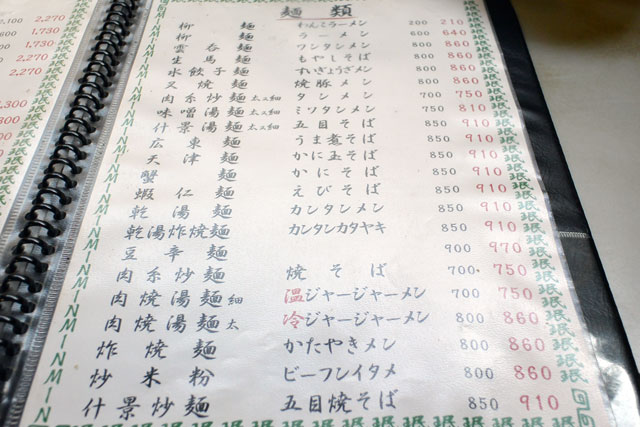 麺類
柳麺 わんこラーメン 200 210
柳麺 ラーメン 600 640
雲呑麺 ワンタンメン 800 860
生馬麺 もやしそば 800 860
水餃子麺 すいぎょうざメン 800 860
叉焼麺 焼豚メン 800 860
肉糸炒麺 太ヌ細 タンメン 700 750
味噌湯麺 太ヌ細 ミソタンメン 750 810
什景湯麺 太ヌ細 五目そば 850 910
広東麺 うま煮そば 850 910
天津麺 かに玉そば 850 910
蟹麺 かにそば 850 910
蝦仁麺 えびそば 850 910
乾湯麺 カンタンメン 850 910
乾湯炸焼麺 カンタンカタヤキ 850 910
豆辛麺 900 970
肉糸炒麺 焼そば 700 750
肉焼湯麺 細 温ジャージャーメン 700 750
肉焼湯麺 太 冷ジャージャーメン 800 860
炸焼麺 かたやきメン 800 860
炒米粉 ビーフンイタメ 800 860
什景炒麺 五目焼そば 850 910
2,270
1,730
1,730
2,270
2,270
MIN MIN MIN MIN MIN MIN
珉珉珉珉珉珉珉珉